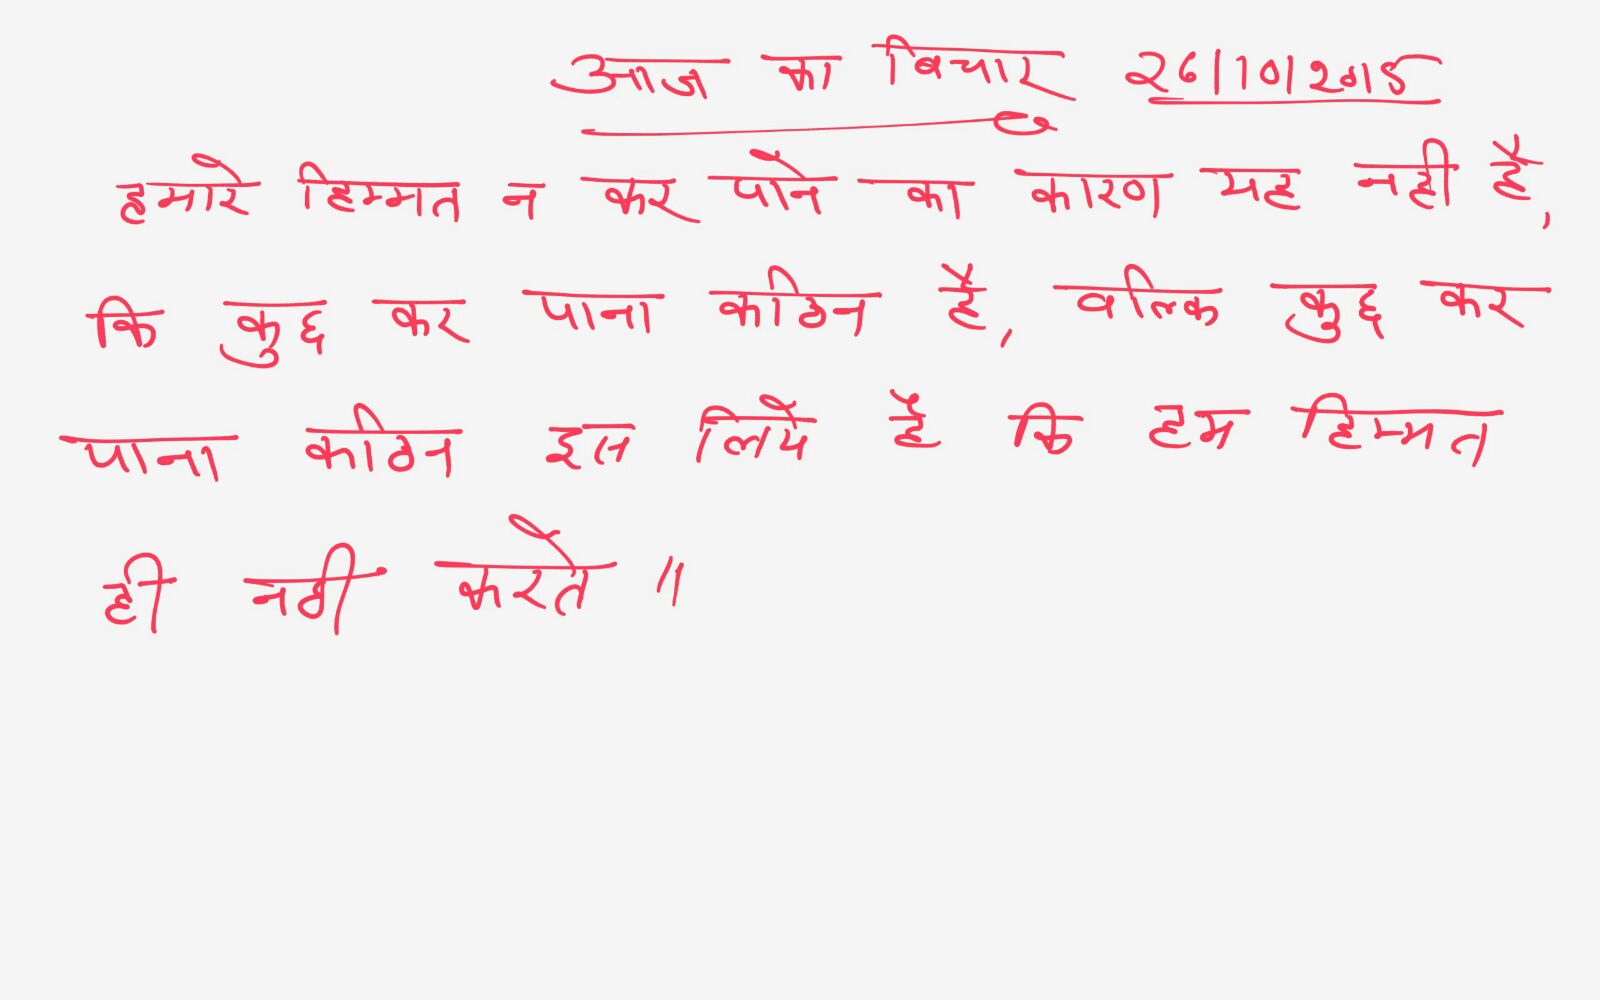 आज का विचार 26/10/2015
हमारे हिम्मत न कर पाने का कारण यह नही है,
कि कुछ कर पाना कठिन है, वल्कि कुछ कर
पाना कठिन इस लिये है कि हम हिम्मत
ही नही करते ॥